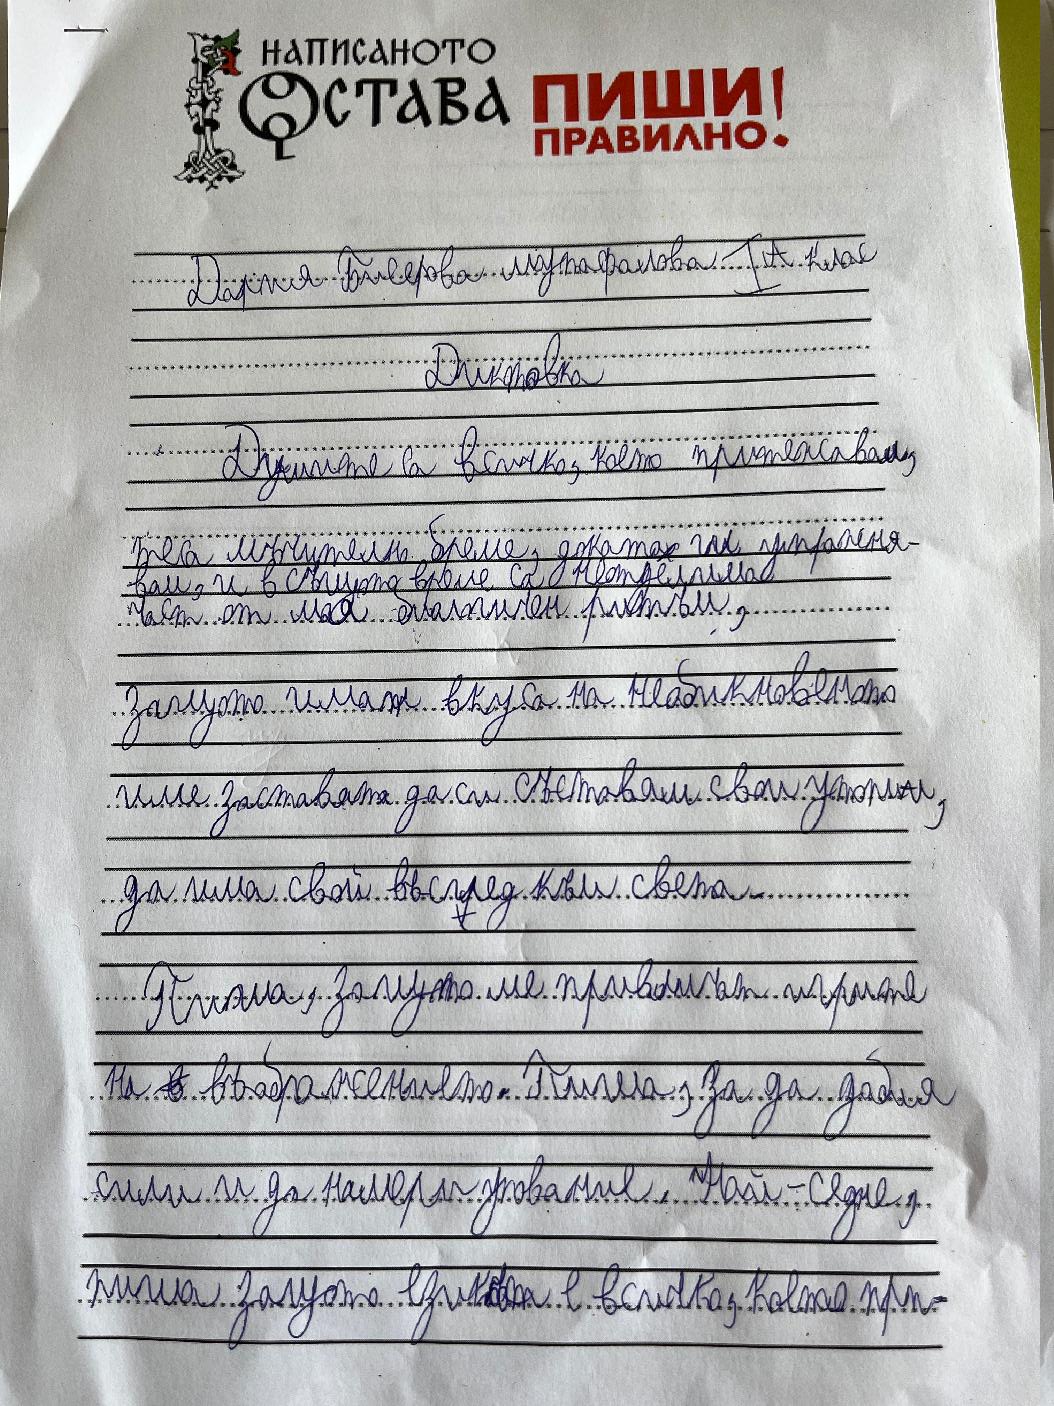 НАПИСАНОТО
ОСТАВА
ПИШИ!
ПРАВИЛНО!
Дария Мутафалова IА клас
Диктовка
Думите са всичко, което притежавам,
тега мъчително бреме, докато ги упраженя-
вам, и в същото време са неотделима
част от моя ритъм,
защото имат вкуса на необикновеното
име заставята да си съставям свои утопии,
да има свой всред към света.
Пиша, защото ме привличат игрите
на въображението. Пиша, за да добия
сили и да намеря уование. Най-седне,
пиша защото е всичко, коетое при-